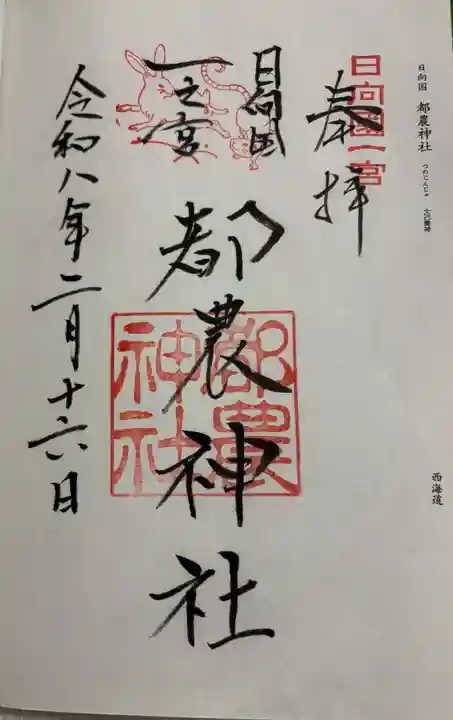 日向国 都農神社 つのじんじゃ
西海道
日向國一宮
奉拝
日向国
一之宮
都農神社
都農神社
令和八年二月十六日